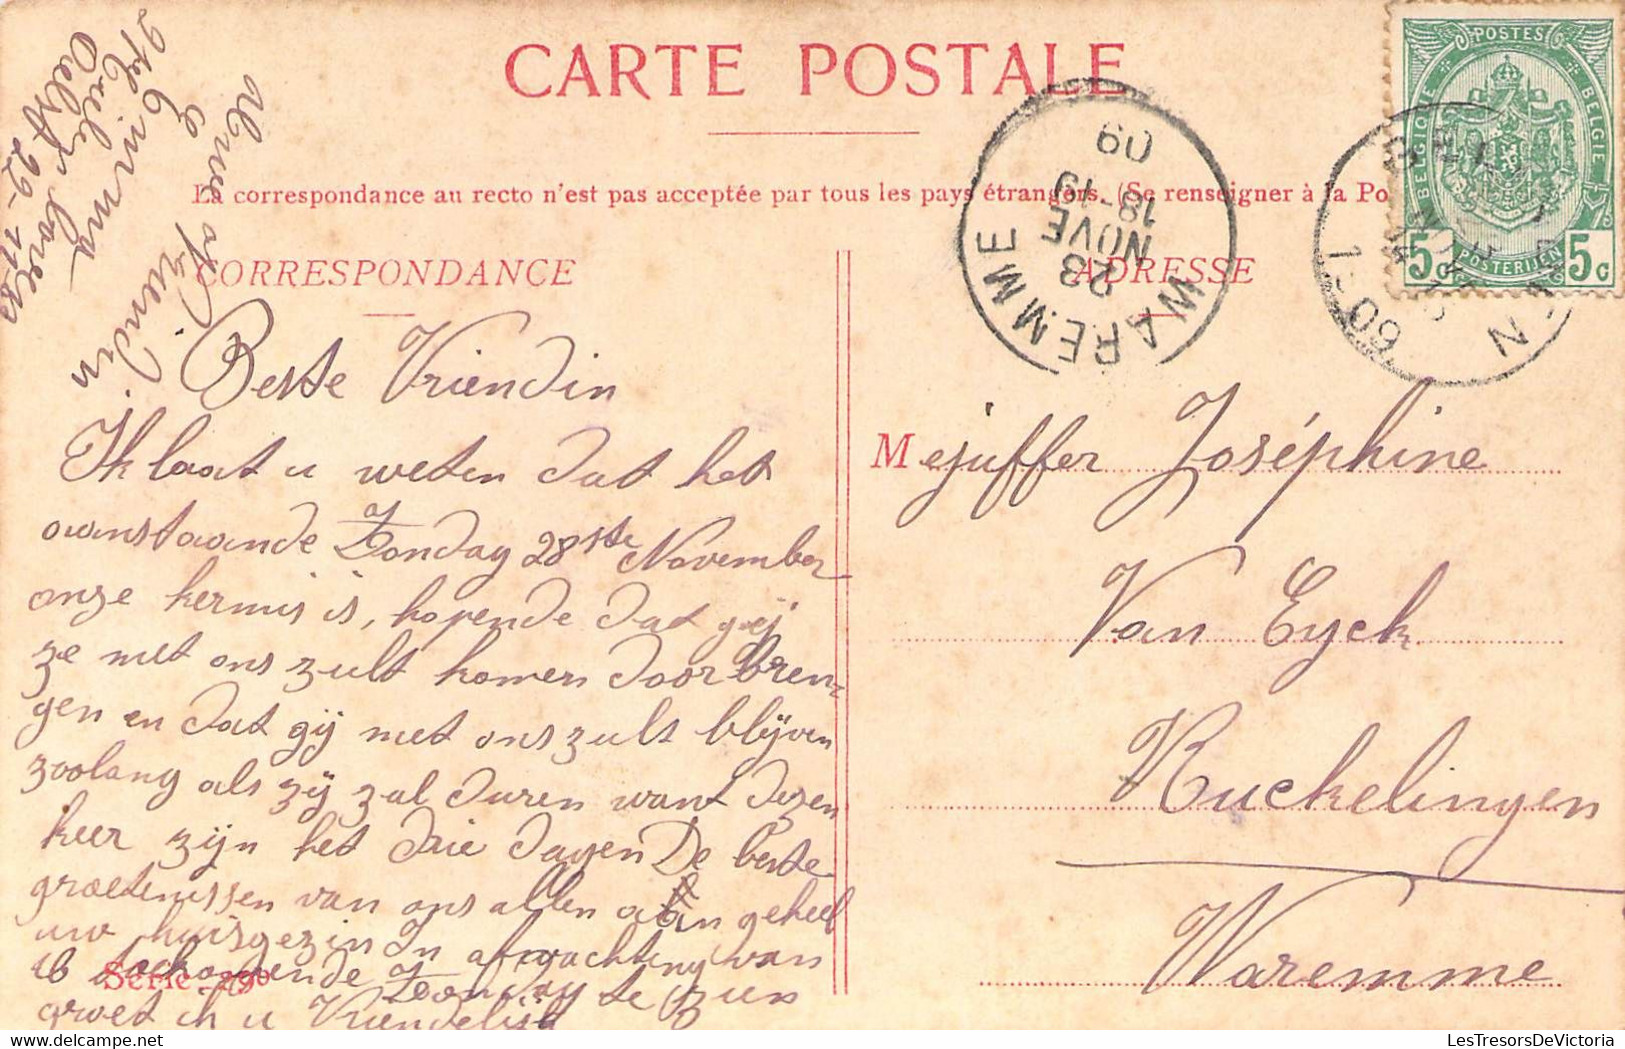 CARTE POSTALE
La correspondance au recto n'est pas acceptée par tous les pays étrangers. (Se renseigner à la Po
CORRESPONDANCE
ADRESSE
POSTES
BELGIQUE
BELGIE
POSTERIJEN
5c 5c
WAREMME
23
NOVE
18-19
09
Beste Vriendin
Ik laat u weten dat het
aanstaande Zondag 28ste November
onze kermis is, hopende dat gij
ze met ons zult komen door bren
gen en dat gij met ons zult blijven
zoolang als zij zal duren want dezen
keer zijn het drie dagen De beste
groetenissen van ons allen aan geheel
uw huisgezin In afwachting van
u toekomende Zondag te zien
groet ik u Vriendelijk
uwe
Vriendin
Emma
Mejuffer Joséphine
Van Eyck
Ruckelingen
Waremme
Série
LesTresorsDeVictoria